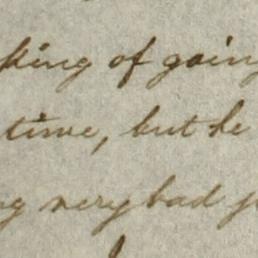 king of going
time, but he
ng very bad